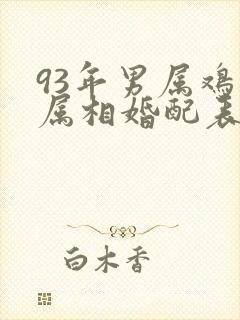 93年男属鸡
属相婚配表
白木香